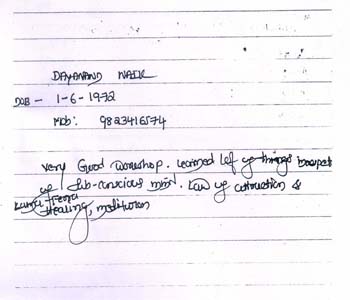 DAYANAND NAIK
DOB - 1-6-1972
Mob: 9823416574
Very Good workshop. Learned lot of things
of Sub-conscious mind. Law of attraction &
Healing, meditation